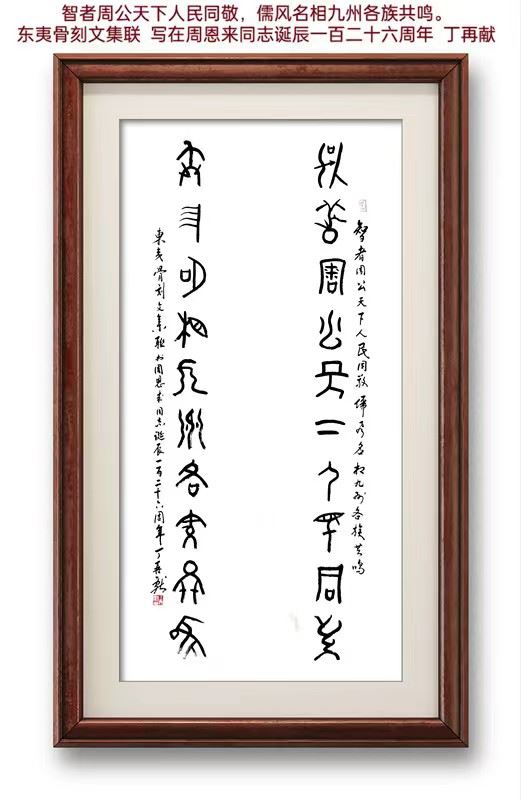 智者周公天下人民同敬，儒风名相九州各族共鸣。
东夷骨刻文集联 写在周恩来同志诞辰一百二十六周年 丁再献
智者周公天下人民同敬
智者周公天下人民同敬儒风名相九州各族共鸣
儒风名相九州各族共鸣
東夷骨刻文集联於周恩来同志诞辰一百二十六周年丁再献